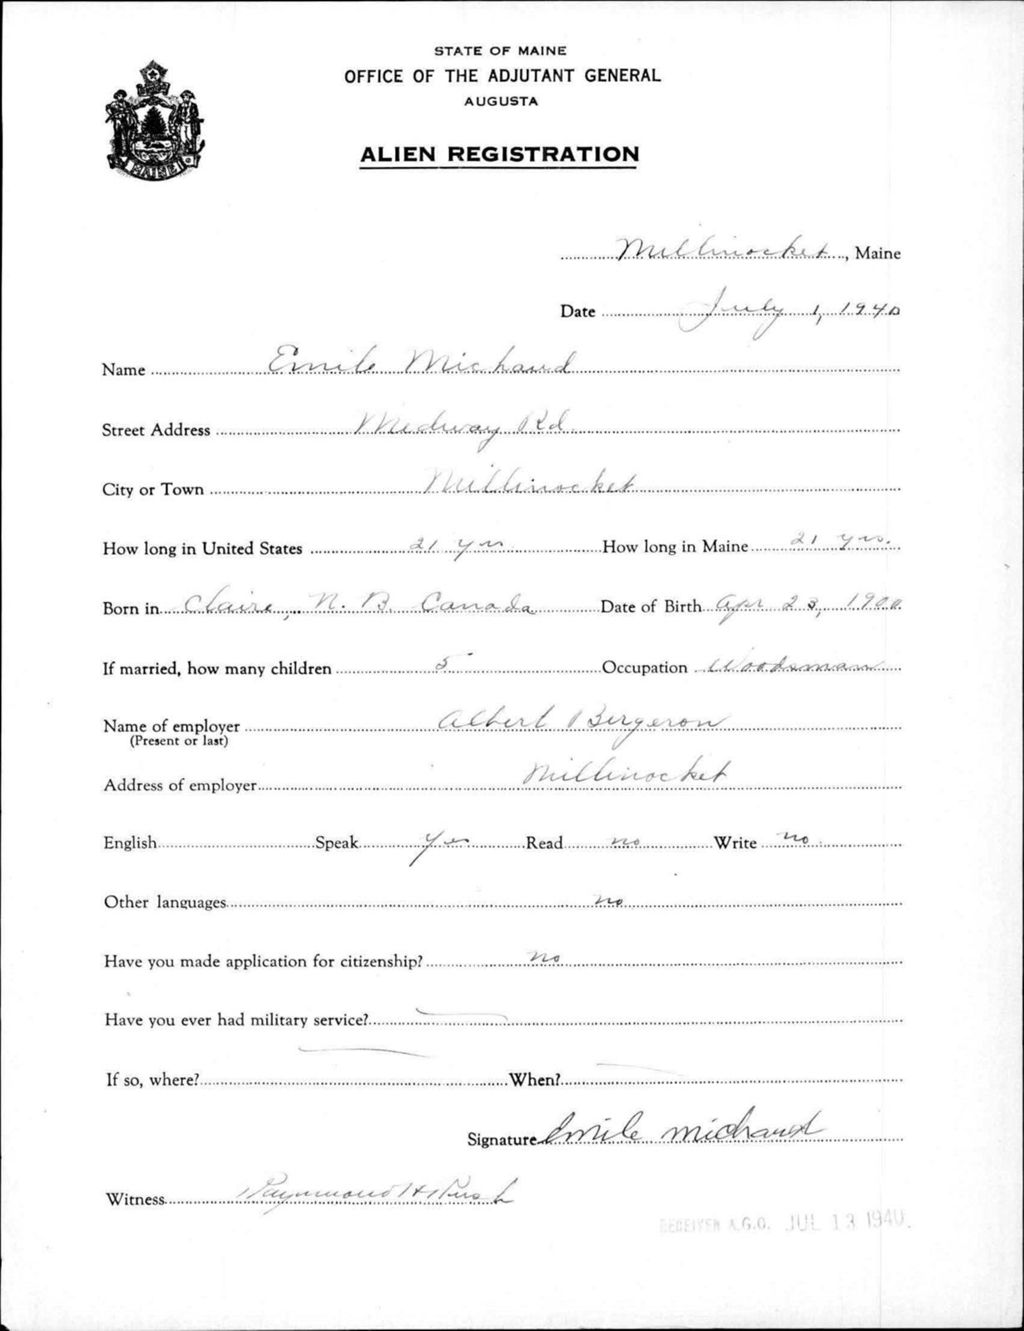 STATE OF MAINE
OFFICE OF THE ADJUTANT GENERAL
AUGUSTA
ALIEN REGISTRATION
MAINE
Millinocket, Maine
Date July 1, 1940
Name Emile Michaud
Street Address Medway Rd
City or Town Millinocket
How long in United States 21 yrs How long in Maine 21 yrs.
Born in Claire, N. B Canada Date of Birth Apr 23, 1900
If married, how many children 5 Occupation Woodsman
Name of employer Albert Bergeron
(Present or last)
Address of employer Millinocket
English Speak Yes Read no Write no
Other languages no
Have you made application for citizenship? no
Have you ever had military service?
If so, where? When?
Signature Emile Michaud
Witness Raymond H Rush
RECEIVED A.G.O. JUL 13 1940